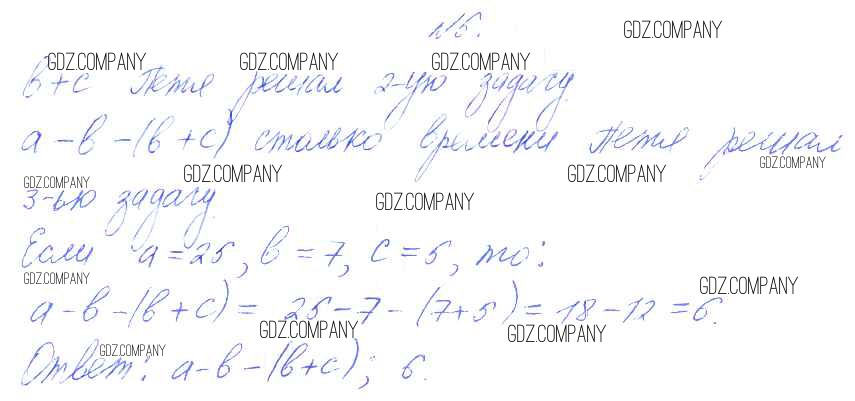 №5.
GDZ.COMPANY
GDZ.COMPANY GDZ.COMPANY GDZ.COMPANY
в+с Петя решал 2-ую задачу
а-в-(в+с) столько времени Петя решал
GDZ.COMPANY GDZ.COMPANY GDZ.COMPANY
GDZ.COMPANY GDZ.COMPANY
3-ью задачу.
Если а=25, в=7, с=5, то:
GDZ.COMPANY GDZ.COMPANY
а-в-(в+с)= 25-7-(7+5)=18-12=6.
GDZ.COMPANY GDZ.COMPANY
GDZ.COMPANY
Ответ: а-в-(в+с); 6.